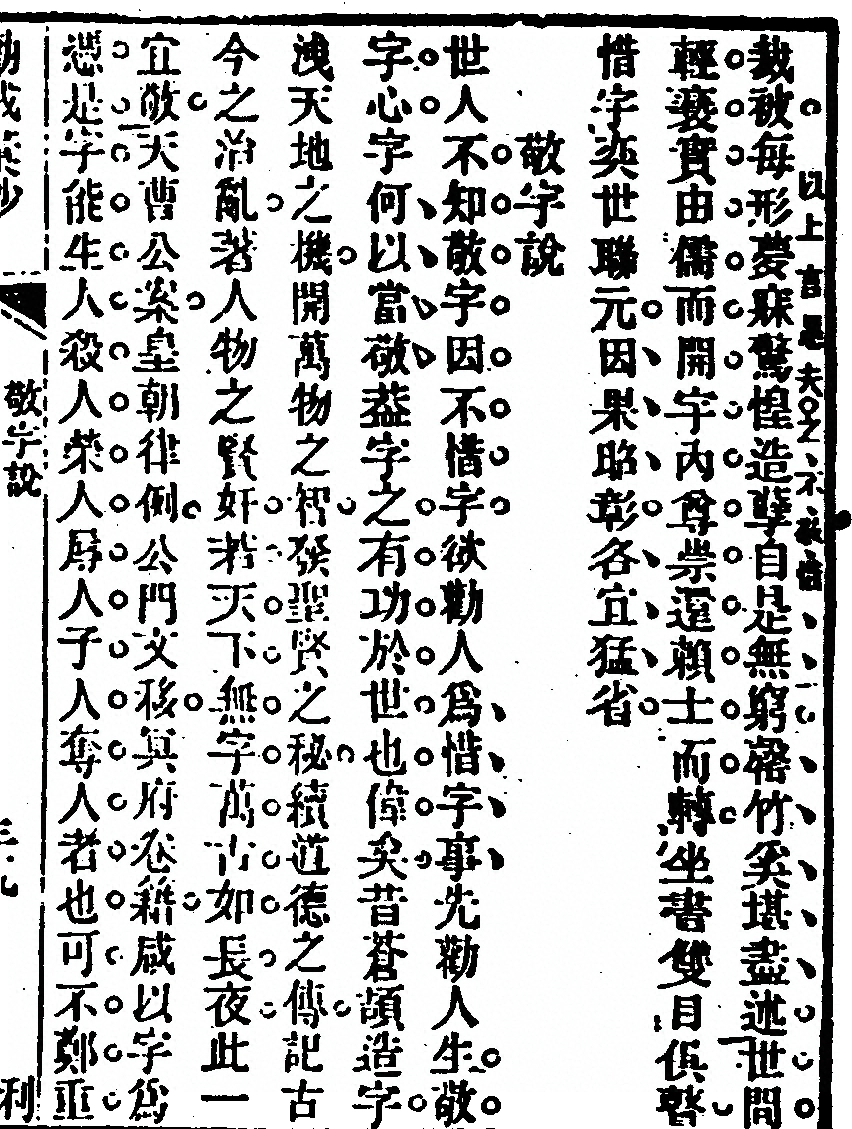 哉被每形夢寐驚惶造孽自是無窮罄竹奚堪盡述世間
以上言愚夫之不敬惜
輕褻實由儒而開宇內尊崇還賴士而轉坐書雙目俱瞽
惜字奕世聯元因果昭彰各宜猛省
敬字說
世人不知敬字因不惜字欲勸人爲惜字事先勸人生敬
字心字何以當敬蓋字之有功於世也偉矣昔蒼頡造字
洩天地之機開萬物之智發聖賢之秘續道德之傳記古
今之治亂著人物之賢奸若天下無字萬古如長夜此一
宜敬天曹公案皇朝律例公門文移冥府卷籍咸以字爲
憑是字能生人殺人榮人辱人予人奪人者也可不鄭重
敬字說
利